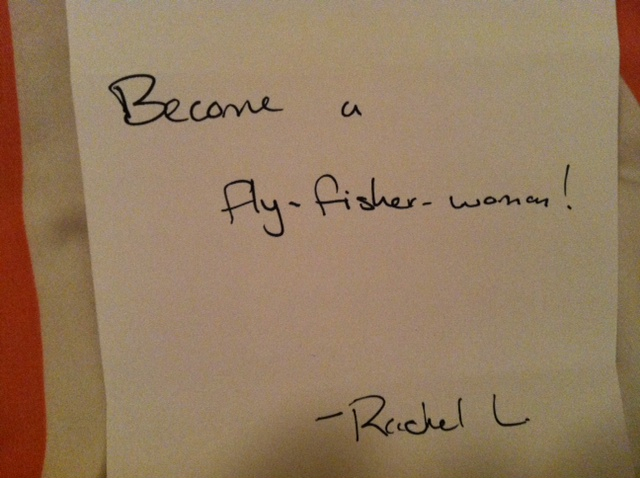 Become a
fly-fisher-woman!
-Rachel L.